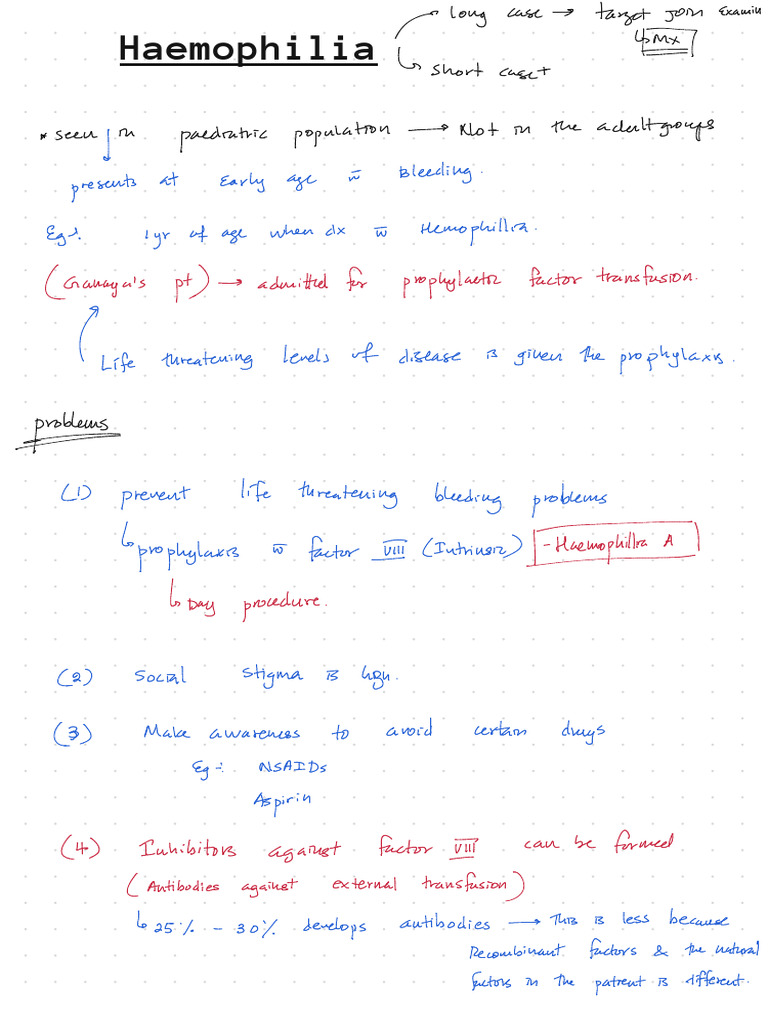 long case → target join Examin
↳ Mx
Haemophilia
short case +
* seen in paediatric population → Not in the adult groups
presents at Early age w̄ Bleeding.
Eg :- 1yr of age when dx w̄ Hemophillia.
(Ganaya's pt) → admitted for prophylactic factor transfusion.
Life threatening levels of disease is given the prophylaxis.
problems
(1) prevent life threatening bleeding problems
↳ prophylaxis w̄ factor VIII (Intrinsic) - Haemophillia A
↳ Day procedure.
(2) Social stigma is high.
(3) Make awareness to avoid certain drugs
Eg :- NSAIDs
Aspirin
(4) Inhibitors against factor VIII can be formed
(Antibodies against external transfusion)
↳ 25% - 30% develops antibodies → This is less because
Recombinant factors & the natural
factors in the patient is different.